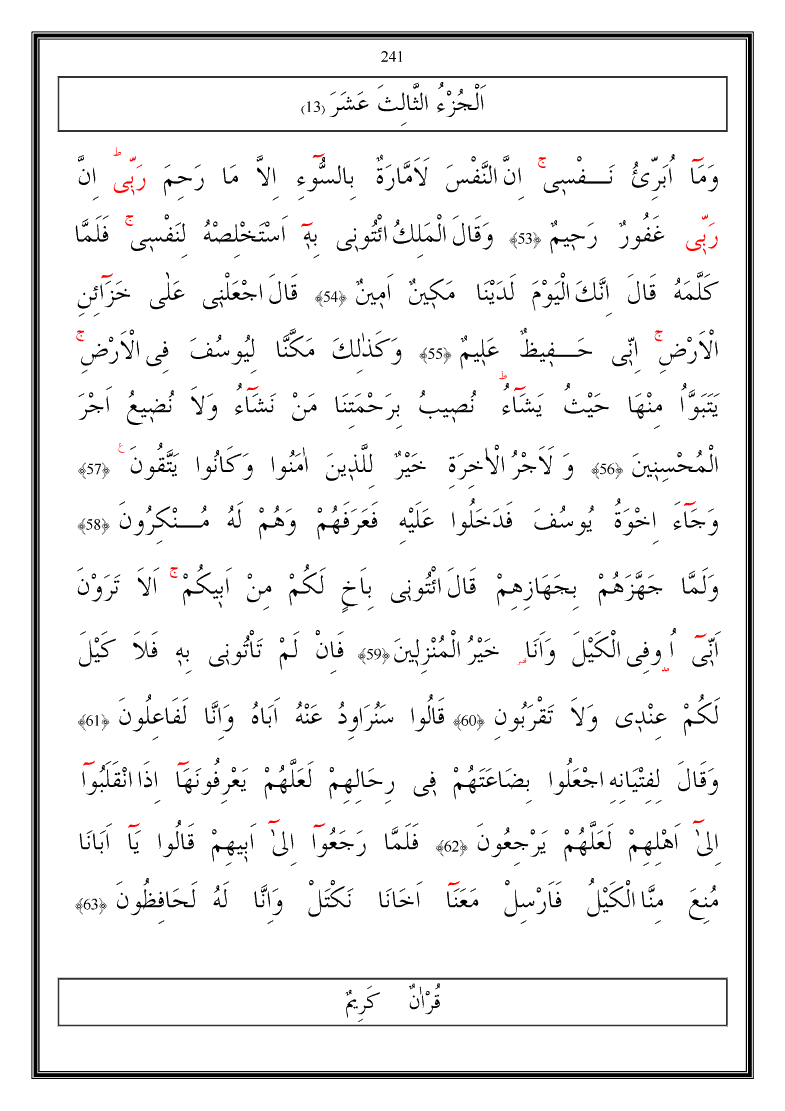 241
اَلْجُزْءُ الثَّالِثَ عَشَرَ ﴿13﴾
وَمَٓا اُبَرِّئُ نَـــفْسٖى ۚ اِنَّ النَّفْسَ لَاَمَّارَةٌ بِالسُّٓوءِ اِلَّا مَا رَحِمَ رَبّٖى ؕ اِنَّ
رَبّٖى غَفُورٌ رَحٖيمٌ ﴿53﴾ وَقَالَ الْمَلِكُ ائْتُونٖى بِهٖٓ اَسْتَخْلِصْهُ لِنَفْسٖى ۚ فَلَمَّا
كَلَّمَهُ قَالَ اِنَّكَ الْيَوْمَ لَدَيْنَا مَكٖينٌ اَمٖينٌ ﴿54﴾ قَالَ اجْعَلْنٖى عَلٰى خَزَٓائِنِ
الْاَرْضِ ۚ اِنّٖى حَـــفٖيظٌ عَلٖيمٌ ﴿55﴾ وَكَذٰلِكَ مَكَّنَّا لِيُوسُفَ فِى الْاَرْضِ ۚ
يَتَبَوَّاُ مِنْهَا حَيْثُ يَشَٓاءُ ؕ نُصٖيبُ بِرَحْمَتِنَا مَنْ نَشَٓاءُ وَلَا نُضٖيعُ اَجْرَ
الْمُحْسِنٖينَ ﴿56﴾ وَ لَاَجْرُ الْاٰخِرَةِ خَيْرٌ لِلَّذٖينَ اٰمَنُوا وَكَانُوا يَتَّقُونَ ۧ ﴿57﴾
وَجَٓاءَ اِخْوَةُ يُوسُفَ فَدَخَلُوا عَلَيْهِ فَعَرَفَهُمْ وَهُمْ لَهُ مُـــنْكِرُونَ ﴿58﴾
وَلَمَّا جَهَّزَهُمْ بِجَهَازِهِمْ قَالَ ائْتُونٖى بِاَخٍ لَكُمْ مِنْ اَبٖيكُمْ ۚ اَلَا تَرَوْنَ
اَنّٖٓى اُو۫فِى الْكَيْلَ وَاَنَا۬ خَيْرُ الْمُنْزِلٖينَ ﴿59﴾ فَاِنْ لَمْ تَاْتُونٖى بِهٖ فَلَا كَيْلَ
لَكُمْ عِنْدٖى وَلَا تَقْرَبُونِ ﴿60﴾ قَالُوا سَنُرَاوِدُ عَنْهُ اَبَاهُ وَاِنَّا لَفَاعِلُونَ ﴿61﴾
وَقَالَ لِفِتْيَانِهِ اجْعَلُوا بِضَاعَتَهُمْ فٖى رِحَالِهِمْ لَعَلَّهُمْ يَعْرِفُونَهَٓا اِذَا انْقَلَبُٓوا
اِلٰٓى اَهْلِهِمْ لَعَلَّهُمْ يَرْجِعُونَ ﴿62﴾ فَلَمَّا رَجَعُٓوا اِلٰٓى اَبٖيهِمْ قَالُوا يَٓا اَبَانَا
مُنِعَ مِنَّا الْكَيْلُ فَاَرْسِلْ مَعَنَٓا اَخَانَا نَكْتَلْ وَاِنَّا لَهُ لَحَافِظُونَ ﴿63﴾
قُرْاٰنٌ كَرٖيمٌ